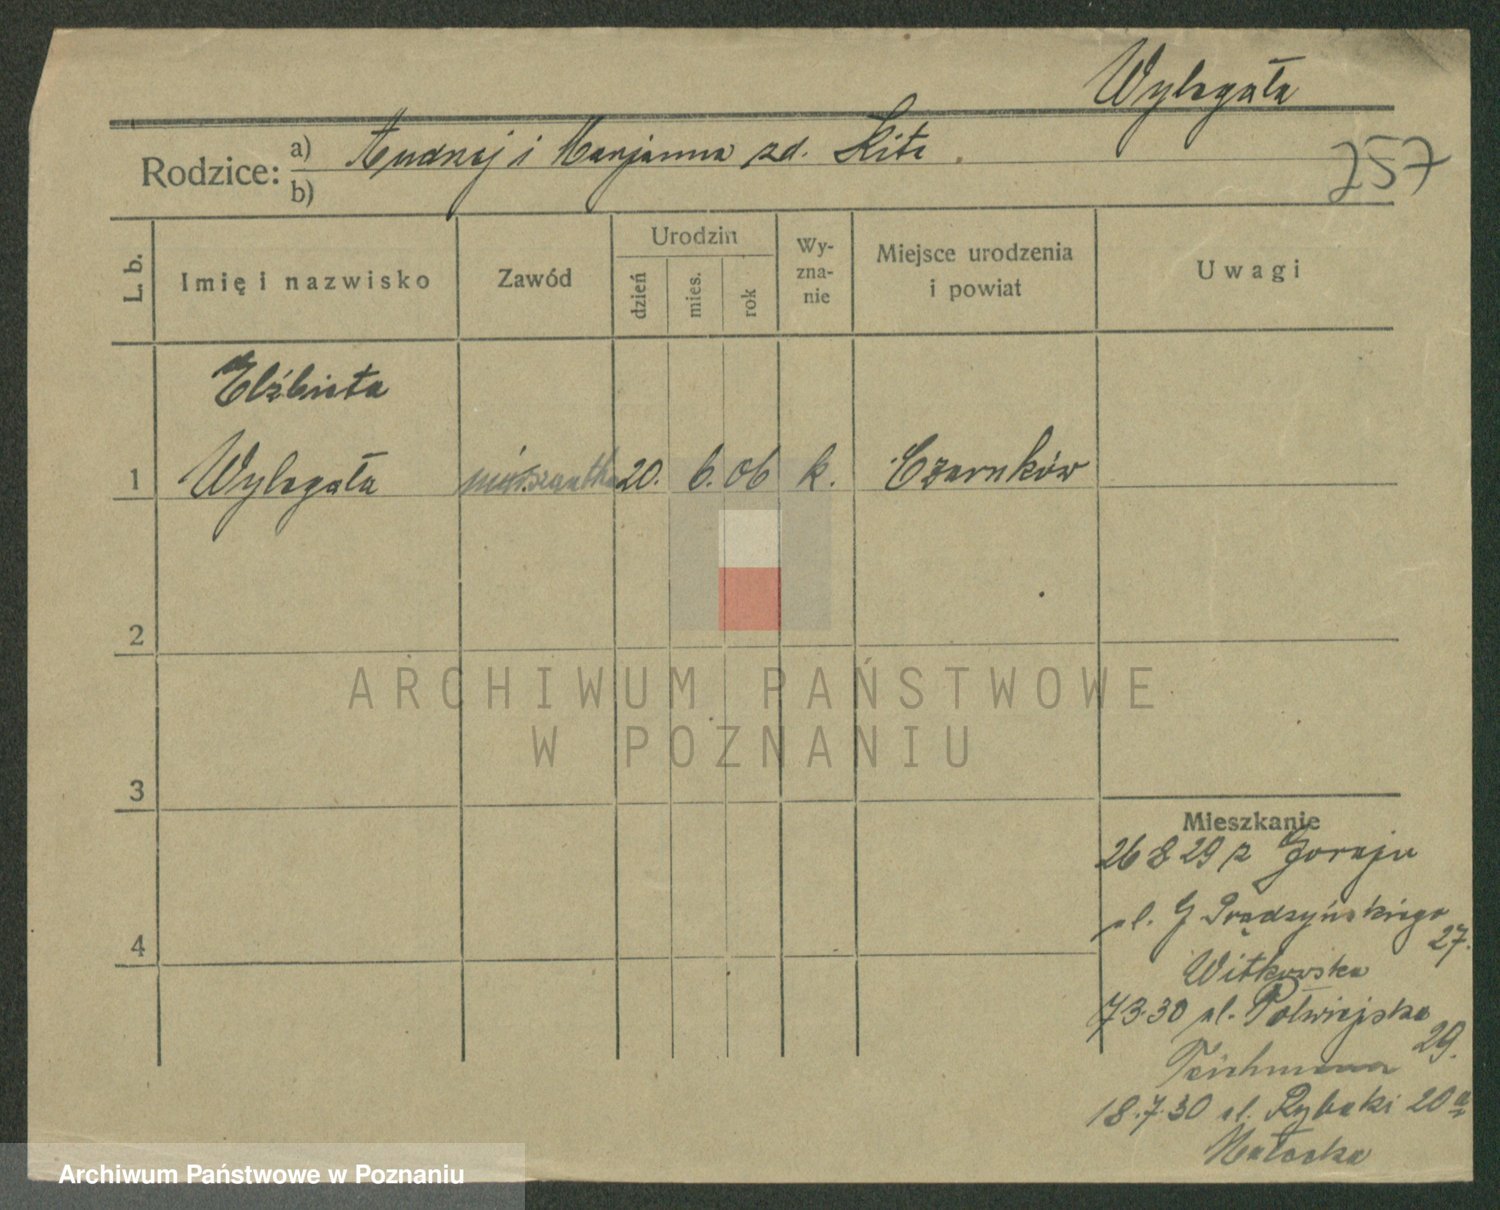 Wylegała
Rodzice: a) Andrzej i Marjanna zd. Kita.
b)
257
L. b.
Imię i nazwisko
Zawód
Urodzin
dzień
mies.
rok
Wy-
zna-
nie
Miejsce urodzenia
i powiat
Uwagi
Elżbieta
1 Wylegała 20. 6. 06 k. Czarnków
2
ARCHIWUM PAŃSTWOWE
W POZNANIU
3
4
Mieszkanie
26 8 29 z Goraju
ul. G Prądzyńskiego
27.
Witkowska
7 3.30 ul. Półwiejska
29.
Teichmann
18.7.30 ul. Rybaki 20a
Małecka
Archiwum Państwowe w Poznaniu